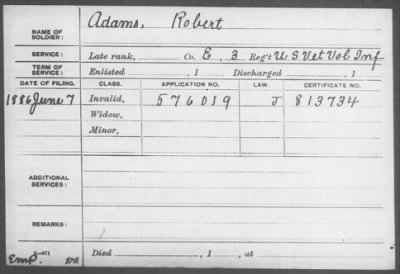 Adams, Robert
NAME OF SOLDIER:
SERVICE: Late rank, Co. E, 3 Reg't U S Vet Vol Inf
TERM OF SERVICE: Enlisted , 1 Discharged , 1
DATE OF FILING. CLASS. APPLICATION NO. LAW. CERTIFICATE NO.
1886 June 7 Invalid, 576019 J 813734
Widow,
Minor,
ADDITIONAL SERVICES:
REMARKS:
Died , 1 , at
Emp.